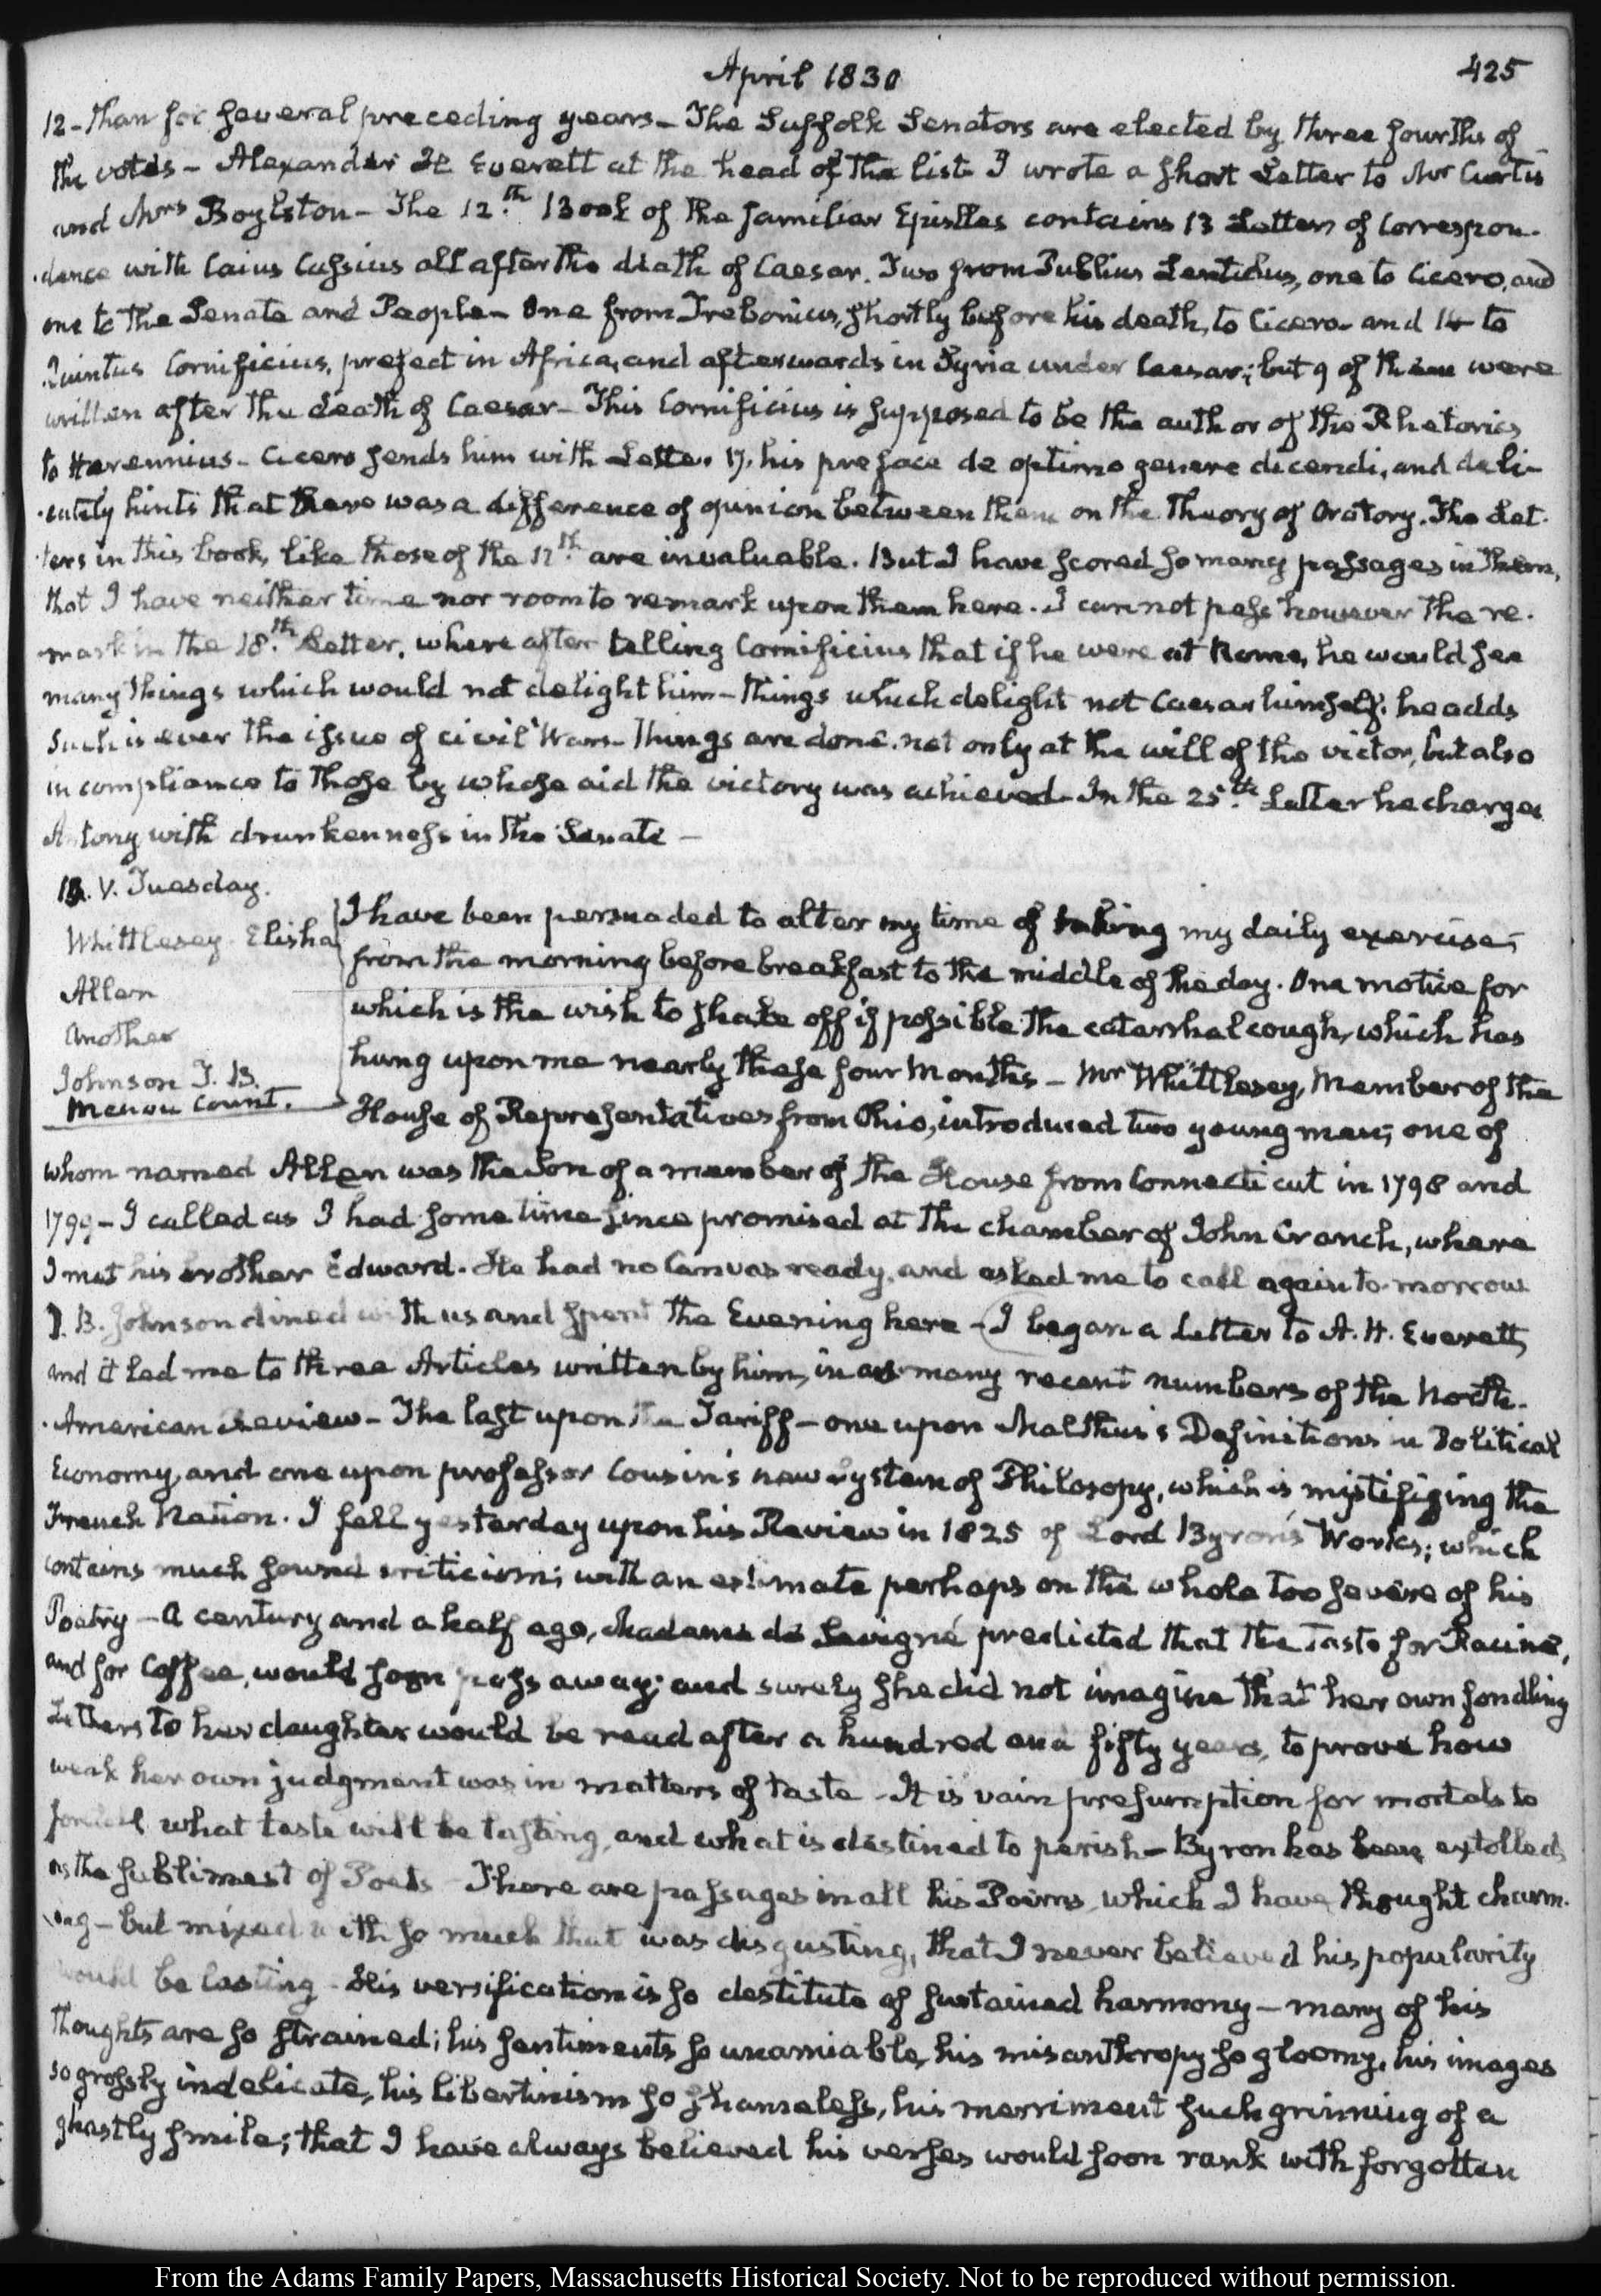 April 1830
425
12 - than for several preceding years - The Suffolk Senators are elected by three fourths of
the votes - Alexander H. Everett at the head of the list. I wrote a short Letter to Mr Curtis
and Mrs Boylston - The 12th Book of the familiar Epistles contains 13 Letters of Correspon-
-dence with Caius Cassius all after the death of Caesar. Two from Publius Lentulus, one to Cicero, and
one to the Senate and People - One from Trebonius, shortly before his death, to Cicero - and 14 to
Quintus Cornificius, prefect in Africa, and afterwards in Syria under Caesar; but 9 of them were
written after the death of Caesar - This Cornificius is supposed to be the author of the Rhetorics
to Herennius - Cicero sends him with Letter 17. his preface de optimo genere dicendi, and deli-
-cately hints that there was a difference of opinion between them on the Theory of Oratory. The Let-
-ters in this book, like those of the 11th are invaluable. But I have scored so many passages in them,
that I have neither time nor room to remark upon them here. I cannot pass however the re-
-mark in the 18th Letter, where after telling Cornificius that if he were at Rome, he would see
many things which would not delight him - things which delight not Caesar himself: he adds
Such is ever the issue of civil Wars - Things are done, not only at the will of the victor, but also
in compliance to those by whose aid the victory was achieved - In the 25th Letter he charges
Antony with drunkenness in the Senate -
13. V. Tuesday.
Whittlesey Elisha
Allen
Another
Johnson T. B.
Menou Count.
I have been persuaded to alter my time of taking my daily exercise;
from the morning before breakfast to the middle of the day. One motive for
which is the wish to shake off if possible the catarrhal cough, which has
hung upon me nearly these four Months - Mr Whittlesey, Member of the
House of Representatives from Ohio, introduced two young men; one of
whom named Allen was the Son of a member of the House from Connecticut in 1798 and
1799 - I called as I had some time since promised at the chamber of John Cranch, where
I met his brother Edward. He had no Canvas ready, and asked me to call again to-morrow
T. B. Johnson dined with us and spent the Evening here - I began a Letter to A. H. Everett,
and it led me to three Articles written by him, in as many recent numbers of the North-
-American Review - The last upon the Tariff - one upon Malthus's Definitions in Political
Economy, and one upon professor Cousin's new System of Philosopy, which is mistifying the
French Nation. I fell yesterday upon his Review in 1825 of Lord Byron's Works; which
contains much sound criticism; with an estimate perhaps on the whole too severe of his
Poetry - A century and a half ago, Madame de Sevigné predicted that the Taste for Racine,
and for Coffee, would soon pass away; and surely she did not imagine that her own fondling
Letters to her daughter would be read after a hundred and fifty years, to prove how
weak her own judgment was in matters of taste - It is vain presumption for mortals to
foretell what taste will be lasting, and what is destined to perish - Byron has been extolled
as the sublimest of Poets - There are passages in all his Poems, which I have thought charm-
-ing - but mixed with so much that was disgusting, that I never believed his popularity
would be lasting - His versification is so destitute of sustained harmony - many of his
thoughts are so strained; his sentiments so unamiable, his misanthropy so gloomy, his images
so grossly indelicate, his libertinism so shameless, his merriment such grinning of a
ghastly smile; that I have always believed his verses would soon rank with forgotten
From the Adams Family Papers, Massachusetts Historical Society. Not to be reproduced without permission.